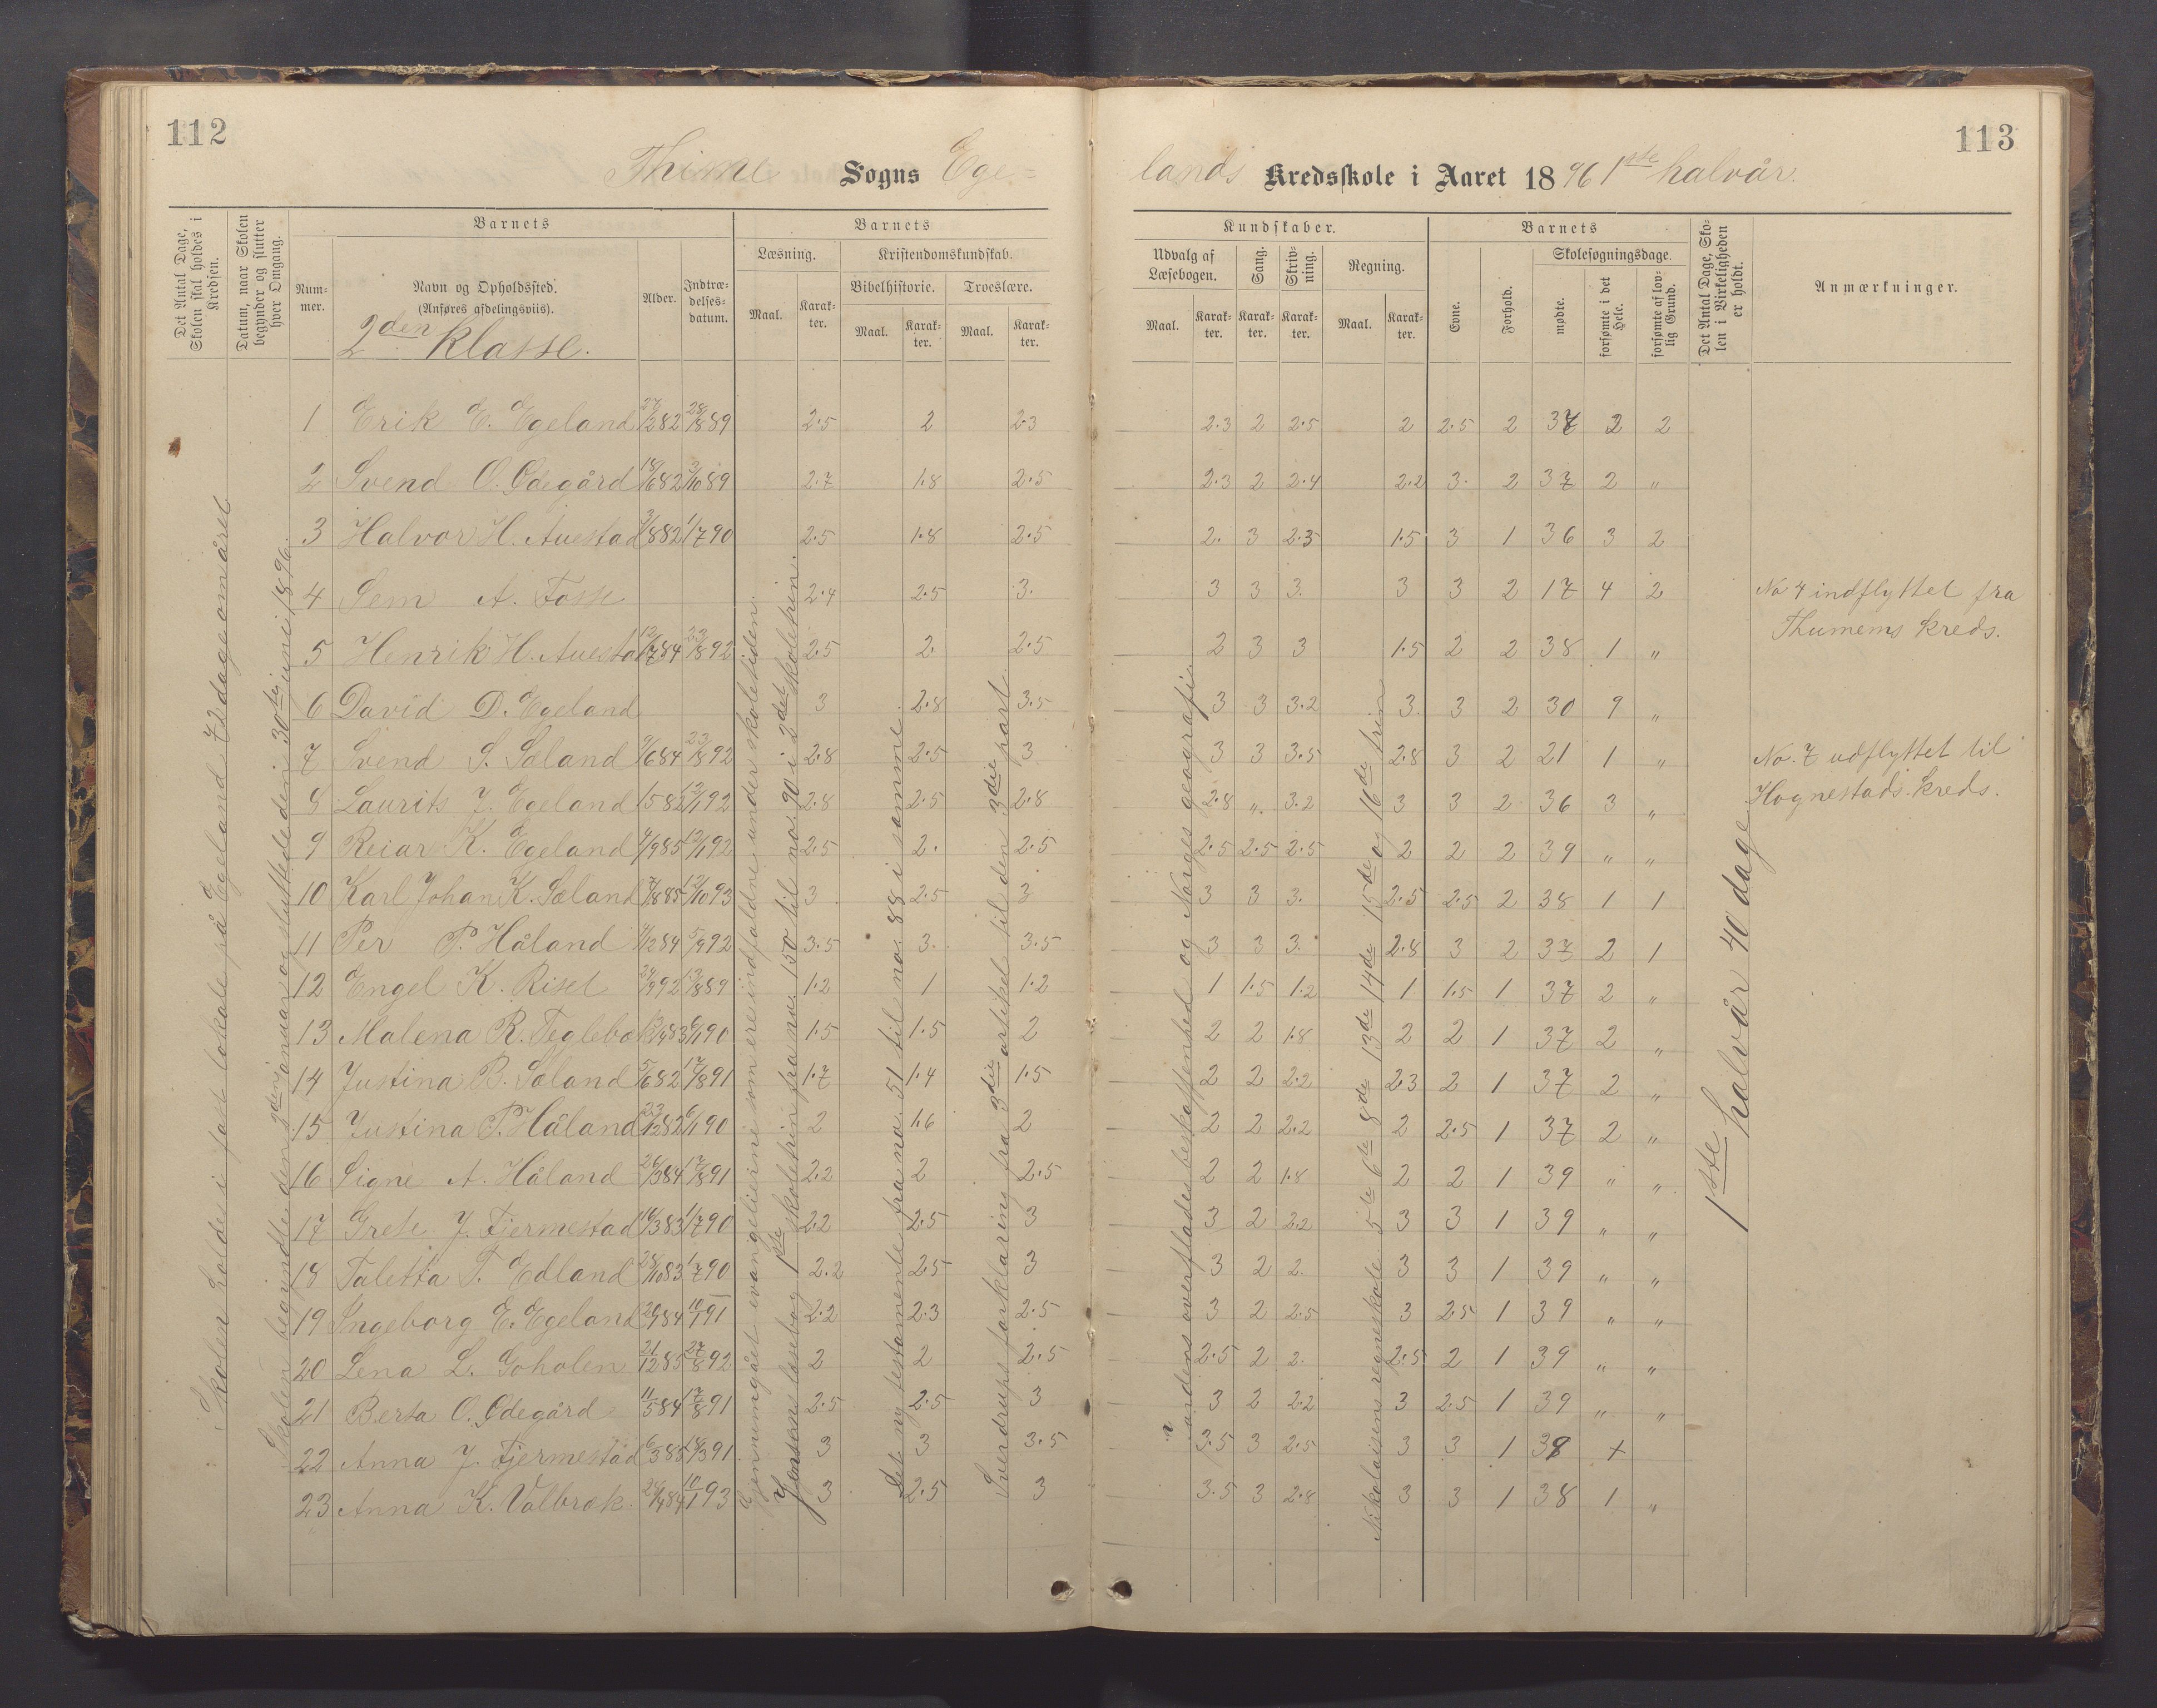 112
113
Thime Sogns Ege=
lands Kredsskole i Aaret 1896 1ste halvår.
Det Antal Dage, Skolen skal holdes i Kredsen.
Datum, naar Skolen begynder og slutter hver Omgang.
Barnets
Num-mer.
Navn og Opholdssted.
(Anføres afdelingsviis).
2den klasse.
Alder.
Indtræ-delses-datum.
Barnets
Læsning.
Maal.
Karak-ter.
Kristendomskundskab.
Bibelhistorie.
Maal.
Karak-ter.
Troeslære.
Maal.
Karak-ter.
Kundskaber.
Udvalg af Læsebogen.
Maal.
Karak-ter.
Sang.
Karak-ter.
Skriv-ning.
Karak-ter.
Regning.
Maal.
Karak-ter.
Barnets
Evne.
Forhold.
Skolesøgningsdage.
mødte.
forsømte i det Hele.
forsømte af lov-lig Grund.
Det Antal Dage, Sko-len i Virkeligheden er holdt.
Anmærkninger.
1 Erik E. Egeland 27/2 82 28/8 89 2.5 2 2.3 2.3 2 2.5 2 2.5 2 2 2
2 Svend O. Ødegård 18/6 82 3/10 89 2.7 1.8 2.5 2.3 2 2.4 2.2 3. 2 37 2 "
3 Halvor H. Auestad 3/8 82 1/7 90 2.5 1.8 2.5 2. 3 2.3 1.5 3 1 36 3 2
4 Sem A. Fosse 2.4 2.5 3. 3 3 3. 3 3 2 17 4 2 No 4 indflyttet fra
Thumems kreds.
5 Henrik H. Auestad 84 23/8 92 2.5 2. 2.5 2 3 3 1.5 2 2 38 1 "
6 David D. Egeland 3 2.8 3.5 3 3 3.2 3. 3 2 30 9 "
7 Svend S. Sæland 9/6 84 23/8 92 2.8 2.5 3 3 3 3.5 2.8 3 2 21 1 " No. 7 udflyttet til
Hognestads kreds.
8 Laurits J. Egeland 1/5 82 12/1 92 2.8 2.5 2.8 2.8 " 3.2 3 3 2 36 3 "
9 Reiar K. Egeland 4/9 85 12/1 92 2.5 2. 2.5 2.5 2.5 2.5 2 2 2 39 " "
10 Karl Johan K. Sæland 7/8 85 12/10 93 3 2.5 3 3 3 3. 2.5 2.5 2 38 1 1
11 Per P. Håland 4/12 84 5/9 92 3.5 3. 3.5 3 3 3. 2.8 3 2 37 2 1
12 Engel K. Risel 92 13/8 89 1.2 1 1.2 1 1.5 1.2 1 1.5 1 37 2 "
13 Malena R. Teglebak 83 6/1 90 1.5 1.5 2 2 2 1.8 2 2 1 37 2 "
14 Justina B. Sæland 5/6 82 17/8 91 1.7 1.4 1.5 2 2 2.2 2.3 2 1 37 2 "
15 Justina P. Håland 23/12 82 6/1 90 2 1.6 2 2 2 2.2 2 2.5 1 37 2 "
16 Signe A. Håland 26/3 84 17/8 91 2.2 2 2.5 2 2 1.8 2 2 1 39 " "
17 Grete J. Fjermestad 16/3 83 1/7 90 2.2 2.5 3 3 2 2.2 3 3 1 39 " "
18 Taletta T. Edland 28/10 83 1/7 90 2.2 2.5 3 3 2 2. 3 3 1 39 " "
19 Ingeborg E. Egeland 84 91 2.2 2.3 2.5 3 2 2.5 3 2.5 1 39 " "
20 Lena L. Goholen 21/12 85 27/8 92 2 2 2.5 2.5 2 2. 2.5 2 1 39 " "
21 Berta O. Ødegård 11/5 84 17/8 91 2.5 2.5 3 3 2 2.2 3 2.5 1 39 " "
22 Anna J. Fjermestad 6/3 85 91 3 3 3.5 3.5 3 2.5 3 3 1
23 Anna K. Valbrak 84 10/1 93 3 2.5 3 3.5 3 2.8 3 3 1 38 1 "
Skolen holdes i fast lokale på Egeland 72 dage om året
Skolen begyndte den 2den januar og sluttede den 30te juni 1896.
Gjennemgået evangelierne som ere indfaldne under skoletiden.
Jensens læsebog 1ste skoletrin fra no. 150 til no. 90 i 2det skoletrin.
Det ny testamente fra no. 51 til no. 88 i samme
Sverdrups forklaring fra 3die artikel til den 3die part
Jordens overflades beskaffenhed og Norges geografi
Nikolaisens regneskole 5te 6te 8de 13de 14de 15de og 16de trin
1ste halvår 40 dage